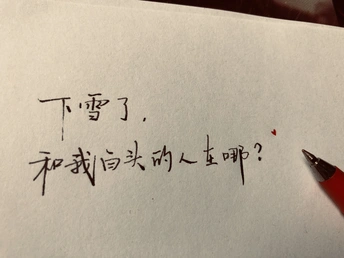 下雪了，
和我白头的人在哪？